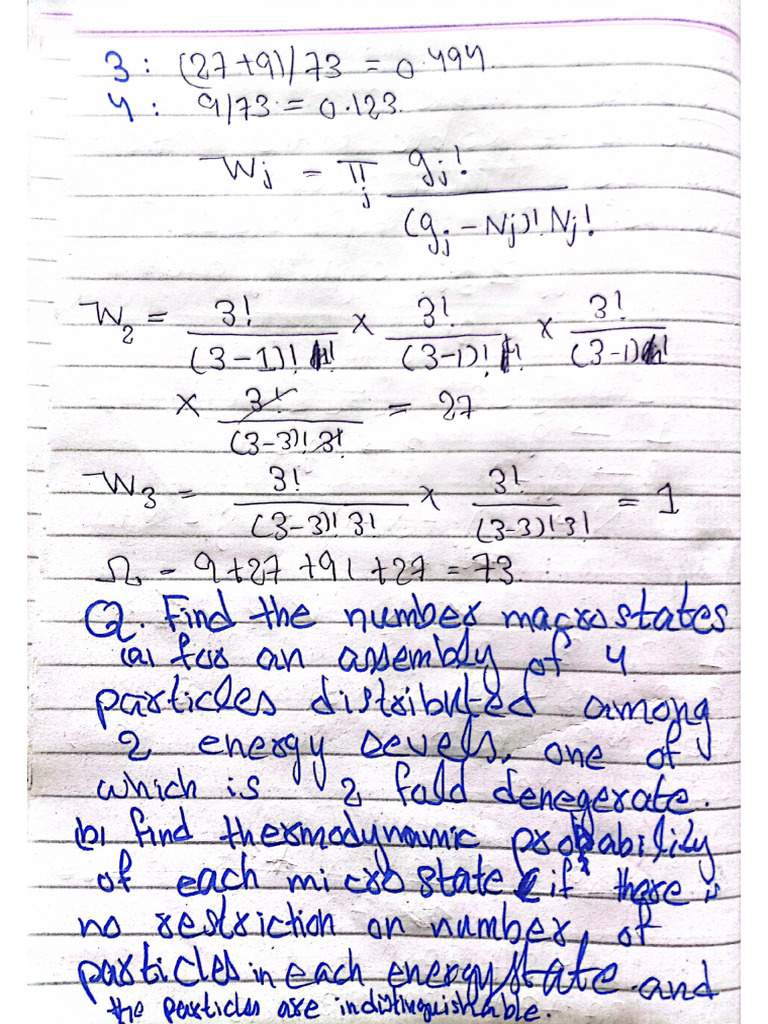 3 : (27+9)/73 = 0.494.
4 : 9/73 = 0.123.
Wj = πj gj! / (gj - Nj)! Nj!
W2 = 3! / (3-1)! 1! × 3! / (3-1)! 1! × 3! / (3-1)1!
× 3! / (3-3)! 3! = 27
W3 = 3! / (3-3)! 3! × 3! / (3-3)! 3! = 1
Ω = 9+27+91+27 = 73.
Q. Find the number macrostates
(a) for an assembly of 4
particles distributed among
2 energy levels, one of
which is 2 fold denegerate.
(b) find thermodynamic probability
of each microstate if there is
no restriction on number of
particles in each energy state and
the particles are indistinguishable.